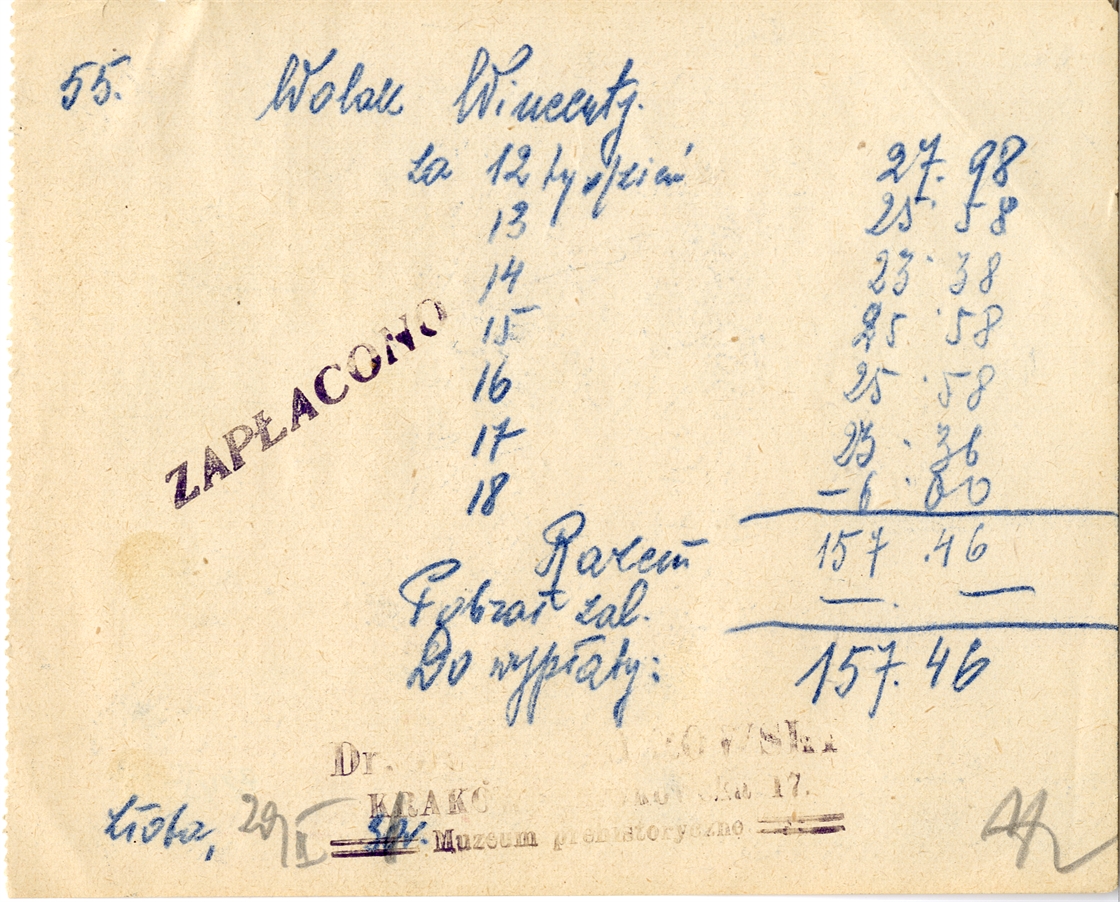 55. Wolak Wincenty.
za 12 tydzień 27.98
13 25.58
14 23.38
15 25.58
16 25.58
17 23.36
18 – 6.00
ZAPŁACONO
Razem 157.46
Pobrał zal. — . —
Do wypłaty: 157.46
Dr.
KRAKÓ 17.
Złota, 29/I
Muzeum prehistoryczne